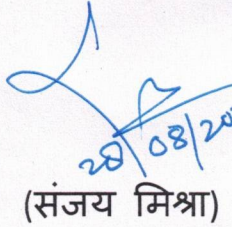 28/08/20
(संजय मिश्रा)